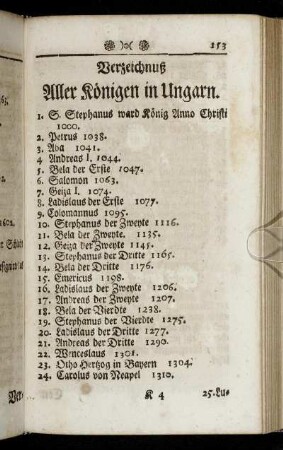 153
Verzeichnuß
Aller Königen in Ungarn.
1. S. Stephanus ward König Anno Christi
1000.
2. Petrus 1038.
3. Aba 1041.
4 Andreas I. 1044.
5. Bela der Erste 1047.
6. Salomon 1063.
7. Geiza I. 1074.
8. Ladislaus der Erste 1077.
9. Colomannus 1095.
10. Stephanus der Zweyte 1116.
11. Bela der Zweyte. 1135.
12. Geiza der Zweyte 1145.
13. Stephanus der Dritte 1165.
14. Bela der Dritte 1176.
15. Emericus 1198.
16. Ladislaus der Zweyte 1206.
17. Andreas der Zweyte 1207.
18. Bela der Vierdte 1238.
19. Stephanus der Vierdte 1275.
20. Ladislaus der Dritte 1277.
21. Andreas der Dritte 1290.
22. Wenceslaus 1301.
23. Otho Hertzog in Bayern 1304.
24. Carolus von Neapel 1310.
K 4 25. Lu-
1601.
Ver-